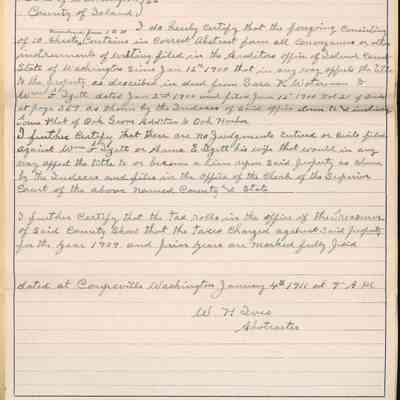 County of Island
I do hereby certify that the forgoing Consisting
of 10 Sheets, Contains a Correct Abstract from all Conveyances or other
instruments of writing filed in the Auditors office of Island County
State of Washington Since Jan 15th 1900 that in any way affects the title
to the property as described in deed from Sarah K Waterman to
Wm L Izett dated Jan 2nd 1900 and filed Jan 15th 1900 Vol of Deeds
at page 267 as shown by the Indexes of Said office
Plat of Oak Grove Addition to Oak Harbor
I further Certify that there are no Judgments entered or Suits filed
against Wm L Izett or Mame E Izett his wife that would in any
way affect the title to or become a lien upon Said property as shown
by the Indexes and files in the office of the Clerk of the Superior
Court of the above Named County & State
I further Certify that the tax rolls in the office of the Treasurer
of Said County Show that the taxes Charged against Said property
for the year 1909 and prior years are marked fully paid
dated at Coupeville Washington January 4th 1911 at 9 A.M
W. H Ives
Abstracter